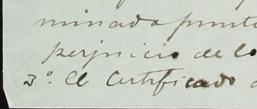 minada punto
perjuicio de lo
3º. El Certificado